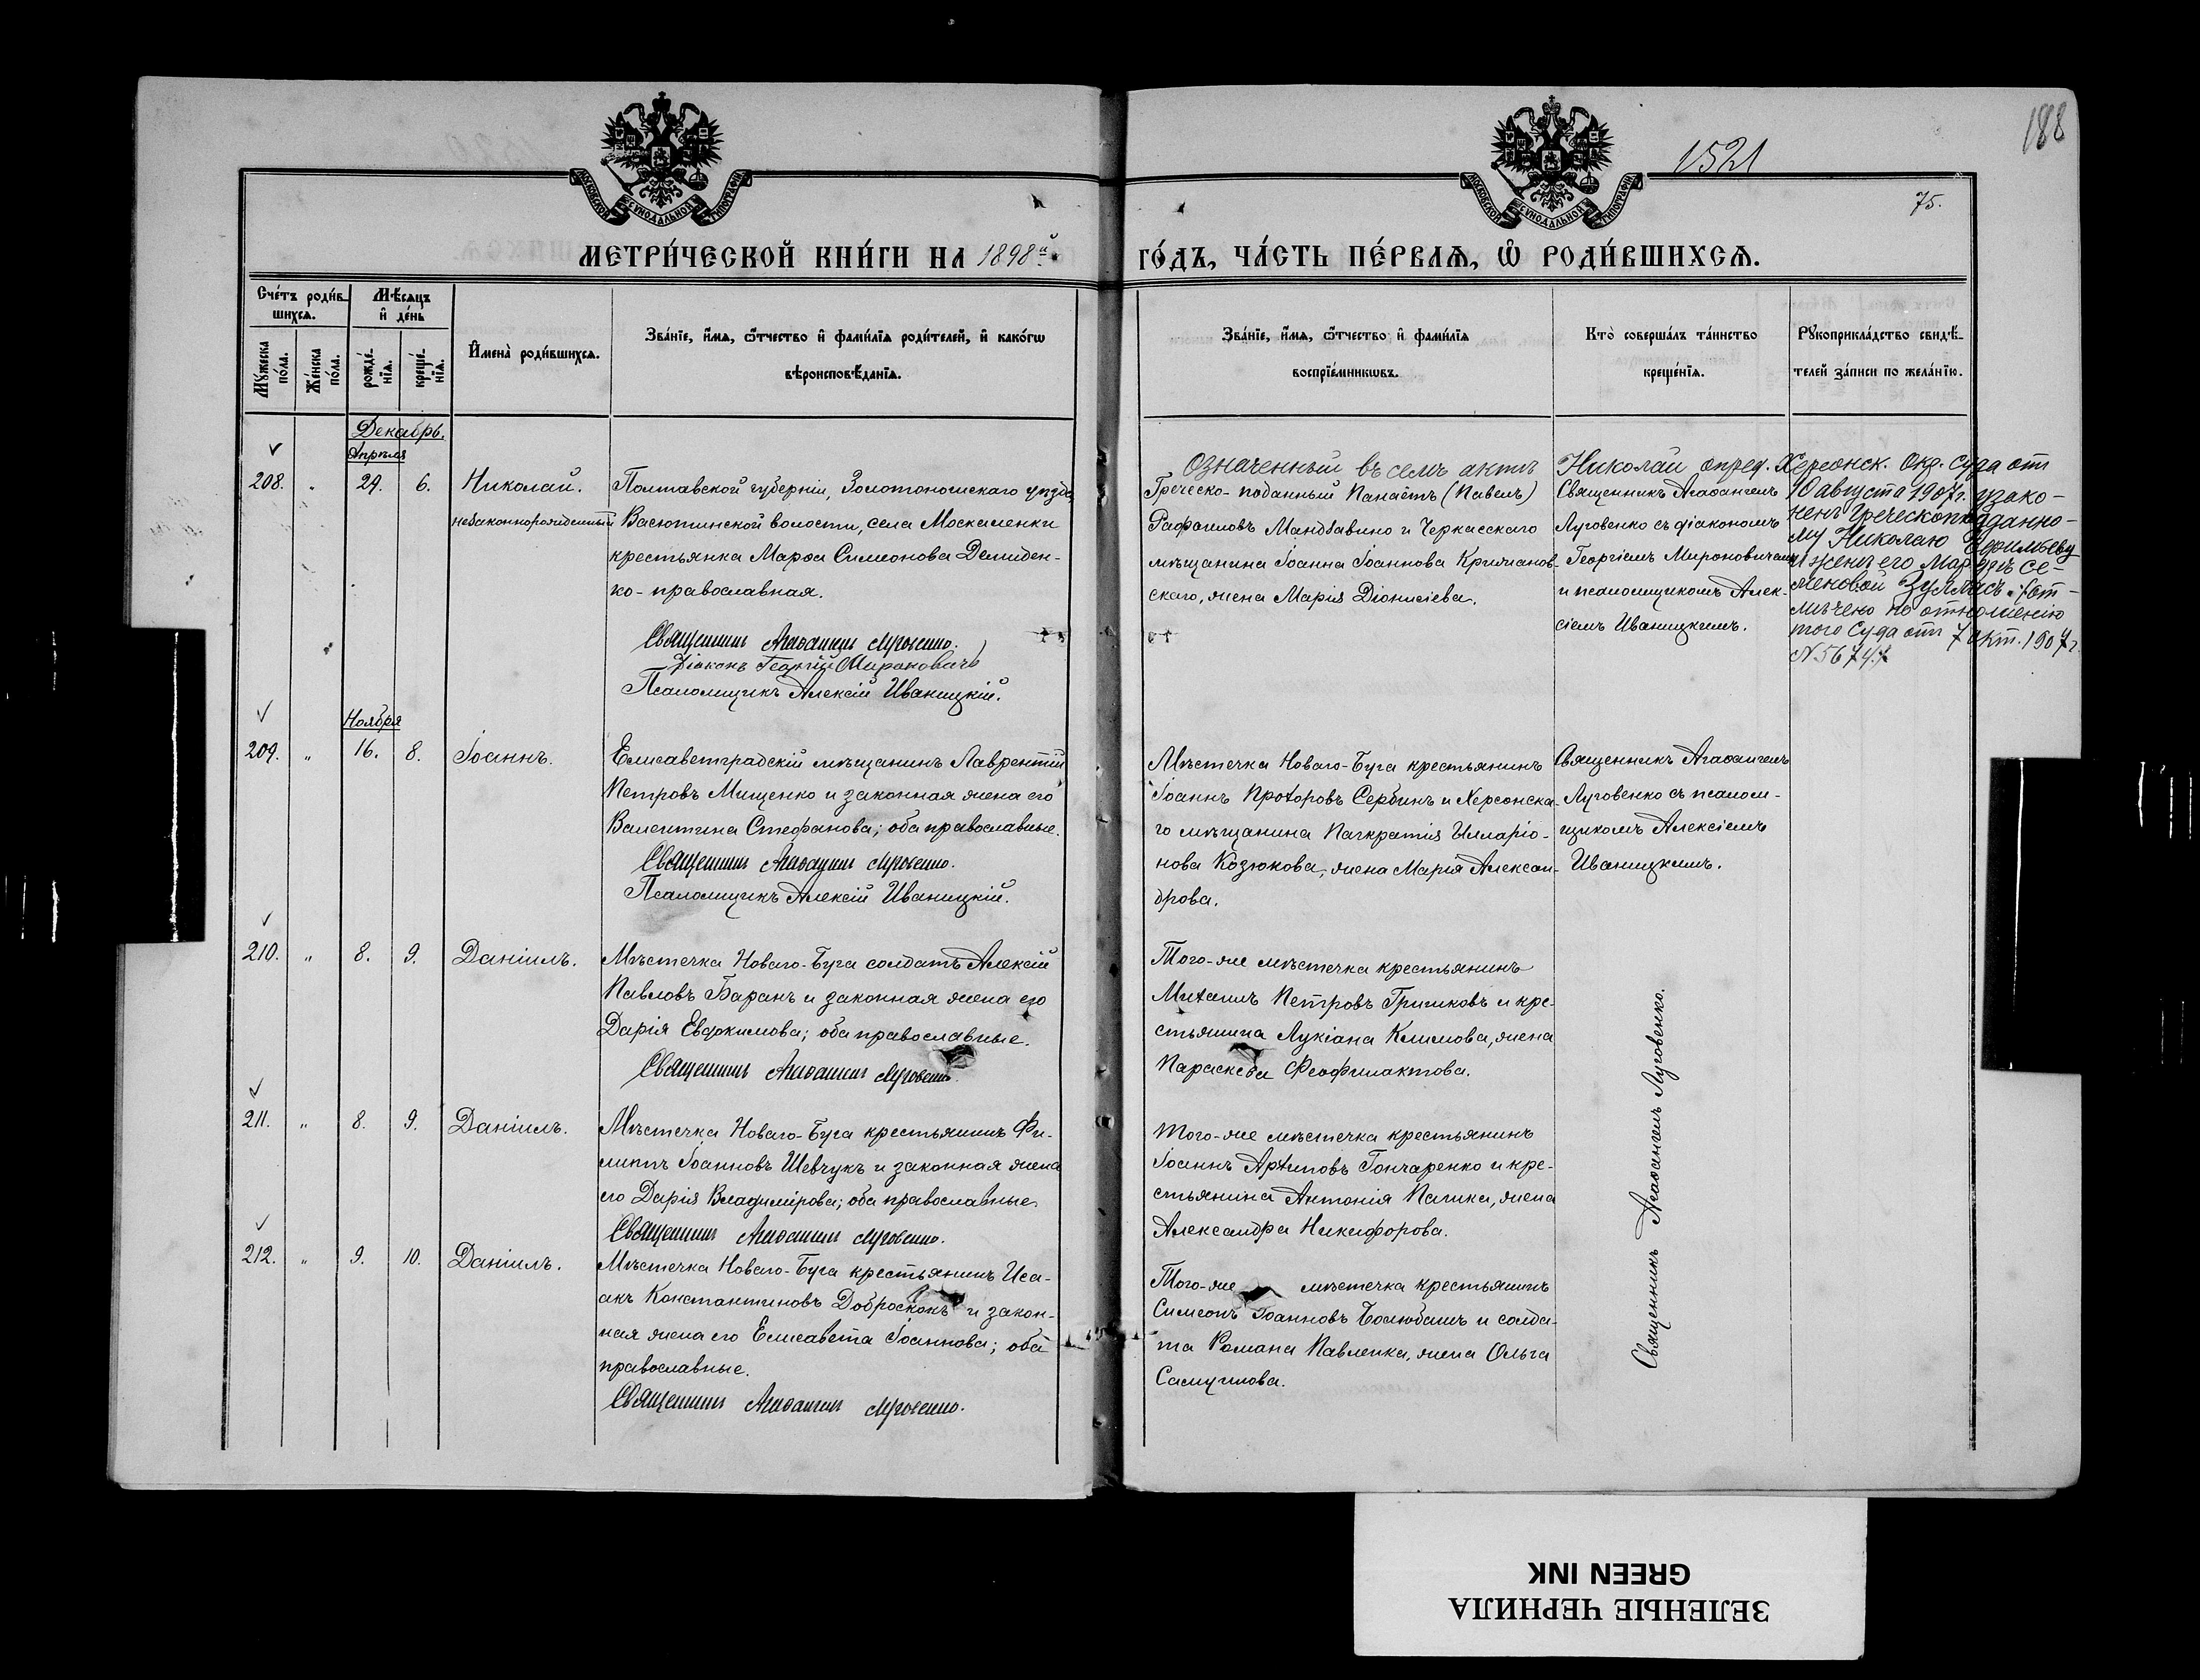 188
1521
75.
МОСКОВСКОЙ СѴНОДАЛЬНОЙ ТИПОГРАФІИ
МОСКОВСКОЙ СѴНОДАЛЬНОЙ ТИПОГРАФІИ
МЕТРИ́ЧЕСКОЙ КНИ́ГИ НА 1898й
ГО́ДЪ, ЧА́СТЬ ПЕ́РВАЯ, Ѡ РОДИ́ВШИХСЯ.
Счéтъ роди́в-
шихся.
Мѣ́сяцъ
и҆ де́нь
Мꙋ́жеска по́ла.
Же́нска по́ла.
рожде́-
нїя.
креще́-
нїя.
И҆мена̀ роди́вшихся.
Зва́нїе, и҆́мя, ѻ҆́тчество и҆ фами́лїя роди́телей, и҆ како́гѡ
вѣроисповѣ́данїя.
Зва́нїе, и҆́мя, ѻ҆́тчество и҆ фами́лїя
воспрїе́мникѡвъ.
Кто̀ соверша́лъ та́инство
креще́нїя.
Рꙋкоприкла́дство свидѣ́-
телей за́писи по жела́нїю.
Декабрь.
Апрѣля
208. " 29. 6. Николай.
незаконнорожденный
Полтавской губерніи, Золотоношскаго уѣзда,
Васютинской волости, села Москаленки
крестьянка Марѳа Симеонова Демиден-
ко - православная.
Священникъ Агаѳангелъ Луговенко.
Діаконъ Георгій Мироновичъ
Псаломщикъ Алексій Иваницкій.
Греческо-поданный Панаётъ (Павелъ)
Рафаиловъ Мандавино и Черкасскаго
мѣщанина Іоанна Іоаннова Крижанов-
скаго, жена Марія Діонисіева.
Священникъ Агаѳангелъ
Луговенко съ діакономъ
Георгіемъ Мироновичемъ
и псаломщикомъ Алек-
сіемъ Иваницкимъ.
Означенный въ семъ актѣ Николай опред. Херсонск. Окр. Суда отъ
10 августа 1907 г. узако-
ненъ Греческоподданно-
му Николаю
и женѣ его Марѳѣ Се-
меновой
мѣчено по отношенію
того Суда отъ 7 Окт. 1907 г.
№ 56747
Ноября
209. " 16. 8. Іоаннъ.
Елисаветградскій мѣщанинъ Лаврентій
Петровъ Мищенко и законная жена его
Валентина Стефанова; оба православные.
Священникъ Агаѳангелъ Луговенко.
Псаломщикъ Алексій Иваницкій.
Мѣстечка Новаго-Буга крестьянинъ
Іоаннъ Прохоровъ Сербинъ и Херсонска-
го мѣщанина Панкратія Илларіо-
нова Козюкова, жена Марія Алексан-
дрова.
Священникъ Агаѳангелъ
Луговенко съ псалом-
щикомъ Алексіемъ
Иваницкимъ.
210. " 8. 9. Даніилъ.
Мѣстечка Новаго-Буга солдатъ Алексій
Павловъ Баранъ и законная жена его
Дарія Евфокимова; оба православные.
Священникъ Агаѳангелъ Луговенко.
Того-же мѣстечка крестьянинъ
Михаилъ Петровъ Гришковъ и кре-
стьянина Лукіана Климова, жена
Параскева Феофилактова.
211. " 8. 9. Даніилъ.
Мѣстечка Новаго-Буга крестьянинъ Фи-
липпъ Іоанновъ Шевчукъ и законная жена
его Дарія Владимірова; оба православные.
Священникъ Агаѳангелъ Луговенко.
Того-же мѣстечка крестьянинъ
Іоаннъ Архиповъ Гончаренко и кре-
стьянина Антонія Палика, жена
Александра Никифорова.
212. " 9. 10. Даніилъ.
Мѣстечка Новаго-Буга крестьянинъ Иса-
акъ Константиновъ Доброскокъ и закон-
ная жена его Елисавета Іоаннова; оба
православные.
Священникъ Агаѳангелъ Луговенко.
Того-же мѣстечка крестьянинъ
Симеонъ Іоанновъ Болюбашъ и солда-
та Романа Павленка, жена Ольга
Самуилова.
Священникъ Агаѳангелъ Луговенко.
ЗЕЛЕНЫЕ ЧЕРНИЛА
GREEN INK